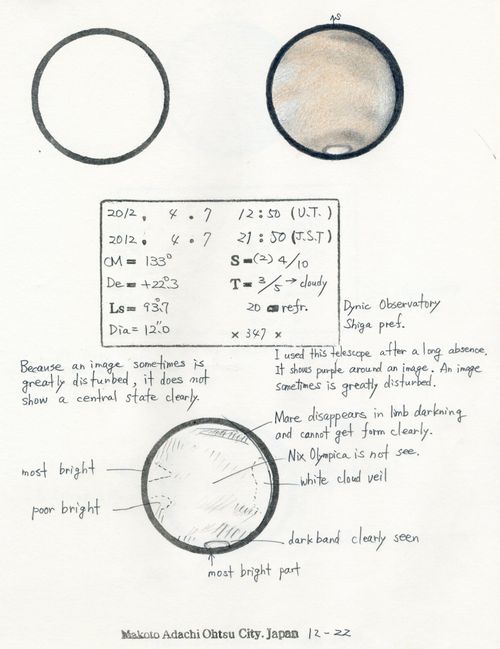 2012. 4. 7 12:50 (U.T.)
2012. 4. 7 21:50 (J.S.T)
CM = 133° S = (2) 4/10
De = +22.°3 T = 3/5 → cloudy
Ls = 93.°7 20 cm refr.
Dia = 12."0 × 347 ×
Dynic Observatory
Shiga pref.
Because an image sometimes is
greatly disturbed, it does not
show a central state clearly.
I used this telescope after a long absence.
It shows purple around an image. An image
sometimes is greatly disturbed.
Mare disappears in limb darkning
and cannot get form clearly.
Nix Olympica is not see.
most bright
white cloud veil
poor bright
dark band clearly seen
most bright part
Makoto Adachi Ohtsu City. Japan 12-22